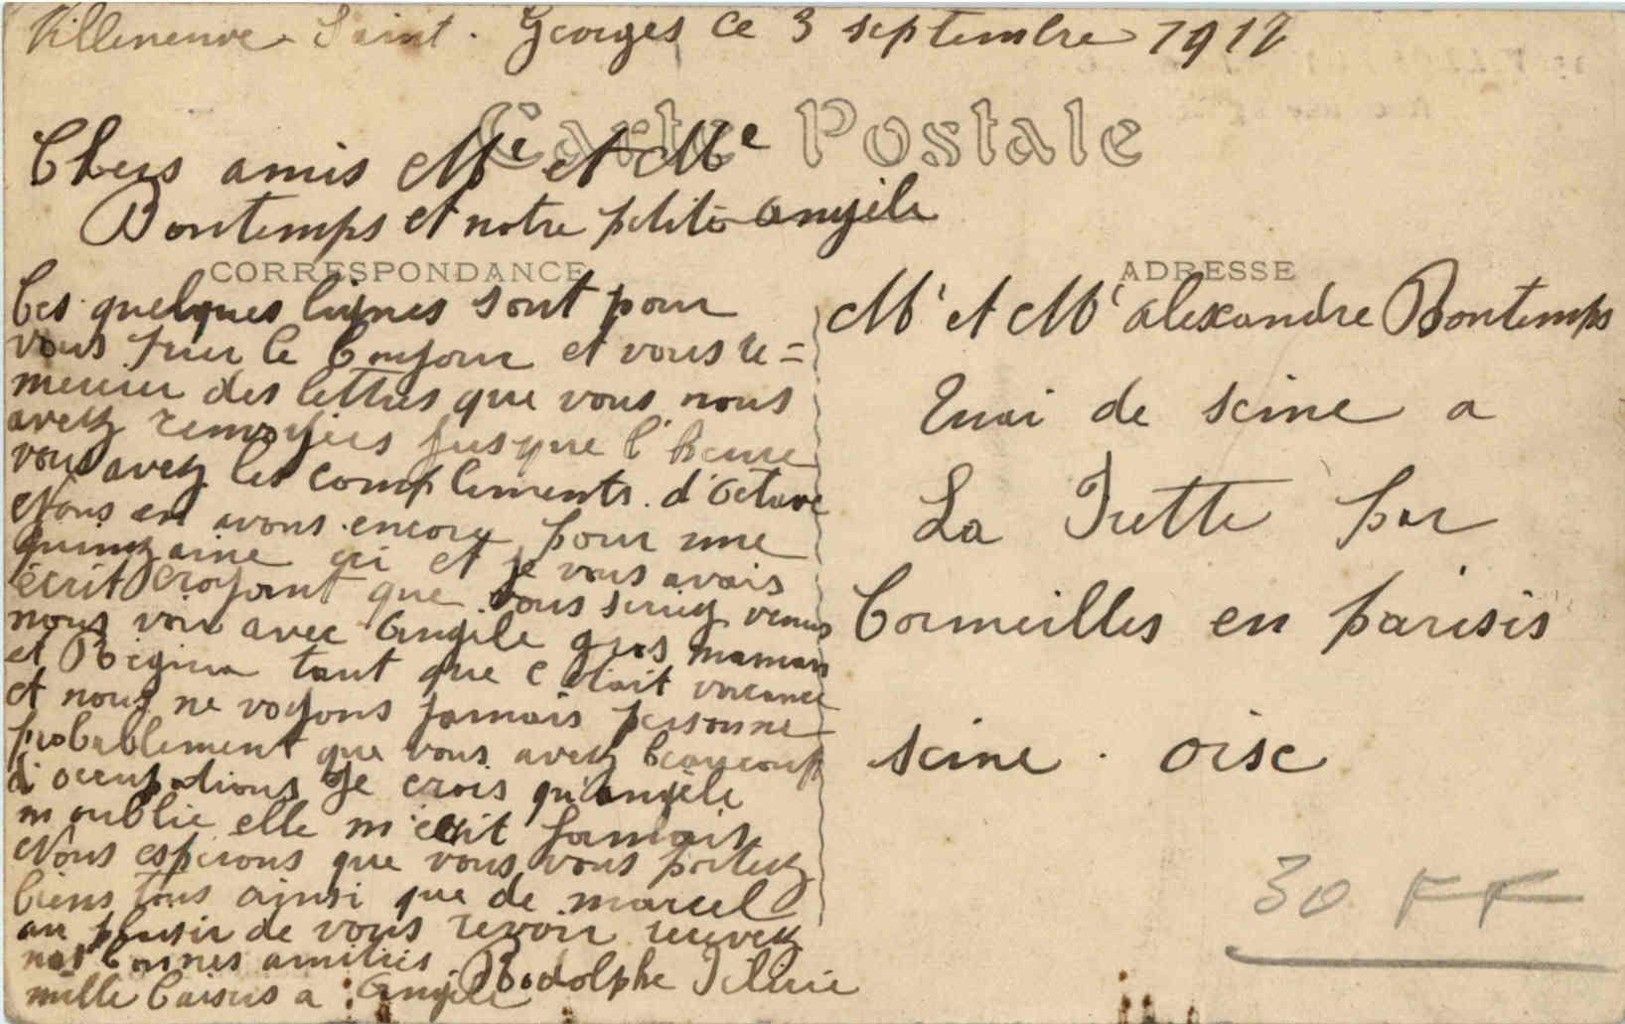 Villeneuve Saint. Georges ce 3 septembre 1917
Carte Postale
Chers amis Mr et Me
Bontemps et notre petite Angèle
CORRESPONDANCE
Ces quelques lignes sont pour
vous
le bonjour et vous re=
mercier des lettres que vous nous
avez renvoyées jusque l'heure
vous avez les compliments d'Octave
Nous en avons encore pour une
quinzaine ici et je vous avais
écrit croyant que vous seriez venus
nous voir avec Angèle gros maman
et Régina tant que c'était vacance
et nous ne voyons jamais personne
probablement que vous avez beaucoup
d'occupations Je crois qu'Angèle
m'oublie elle m'écrit jamais
Nous espérons que vous vous portez
biens tous ainsi que de marcel
au plaisir de vous revoir recevez
nos bonnes amitiés
mille baisers a Angèle Rodolphe
ADRESSE
Mr et Me alexandre Bontemps
Quai de seine a
La Frette par
Cormeilles en parisis
seine . oise
30 FF